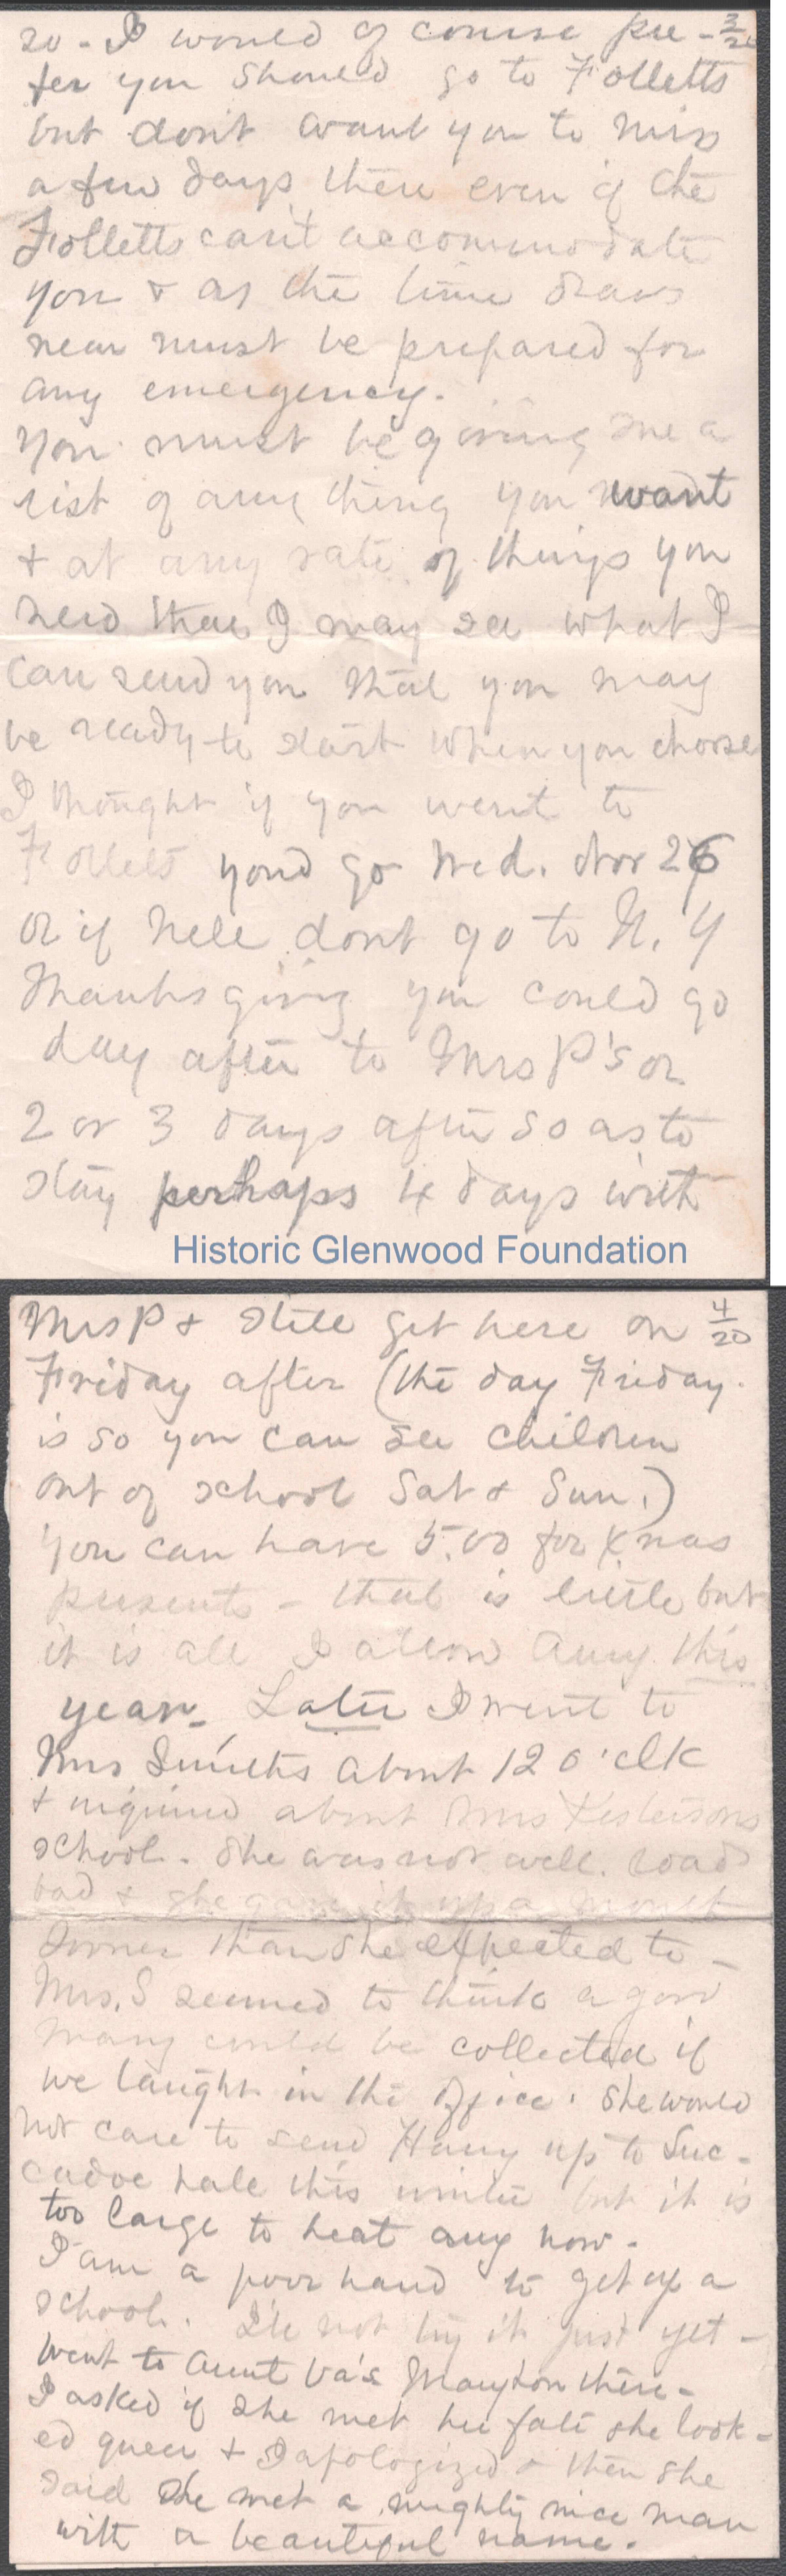 20 - I would of course pre- 3/20
fer you should go to Folletts
but don't want you to miss
a few days there even if the
Folletts can't accommodate
you & as the time draws
near must be prepared for
any emergency.
You must be giving me a
list of any thing you want
& at any rate of things you
need that I may see what I
can send you that you may
be ready to start when you choose
I thought if you went to
Folletts you'd go Wed. Nov 26
or if Nell dont go to N. Y
Thanksgiving you could go
day after to Mrs P's or
2 or 3 days after so as to
stay perhaps 4 days with
Historic Glenwood Foundation
Mrs P & still get here on 4/20
Friday after (the day Friday
is so you can see children
out of school Sat & Sun.)
You can have 5.00 for Xmas
presents - that is little but
it is all I allow Amy this
year. Later I went to
Mrs Smiths about 12 o'clk
& inquired about Mrs
school. She was not well. roads
bad & she gave it up a month
sooner than she expected to -
Mrs. S seemed to think a good
many could be collected if
we taught in the office. She would
not care to send Harry up to Suc-
cadoe hale this winter but it is
too large to heat any how.
I am a poor hand to get up a
school. I'll not try it just yet -
Went to Aunt Va's Mary Lou there -
I asked if she met her fate she look-
ed queer & I apologized & then she
said she met a mighty nice man
with a beautiful name.